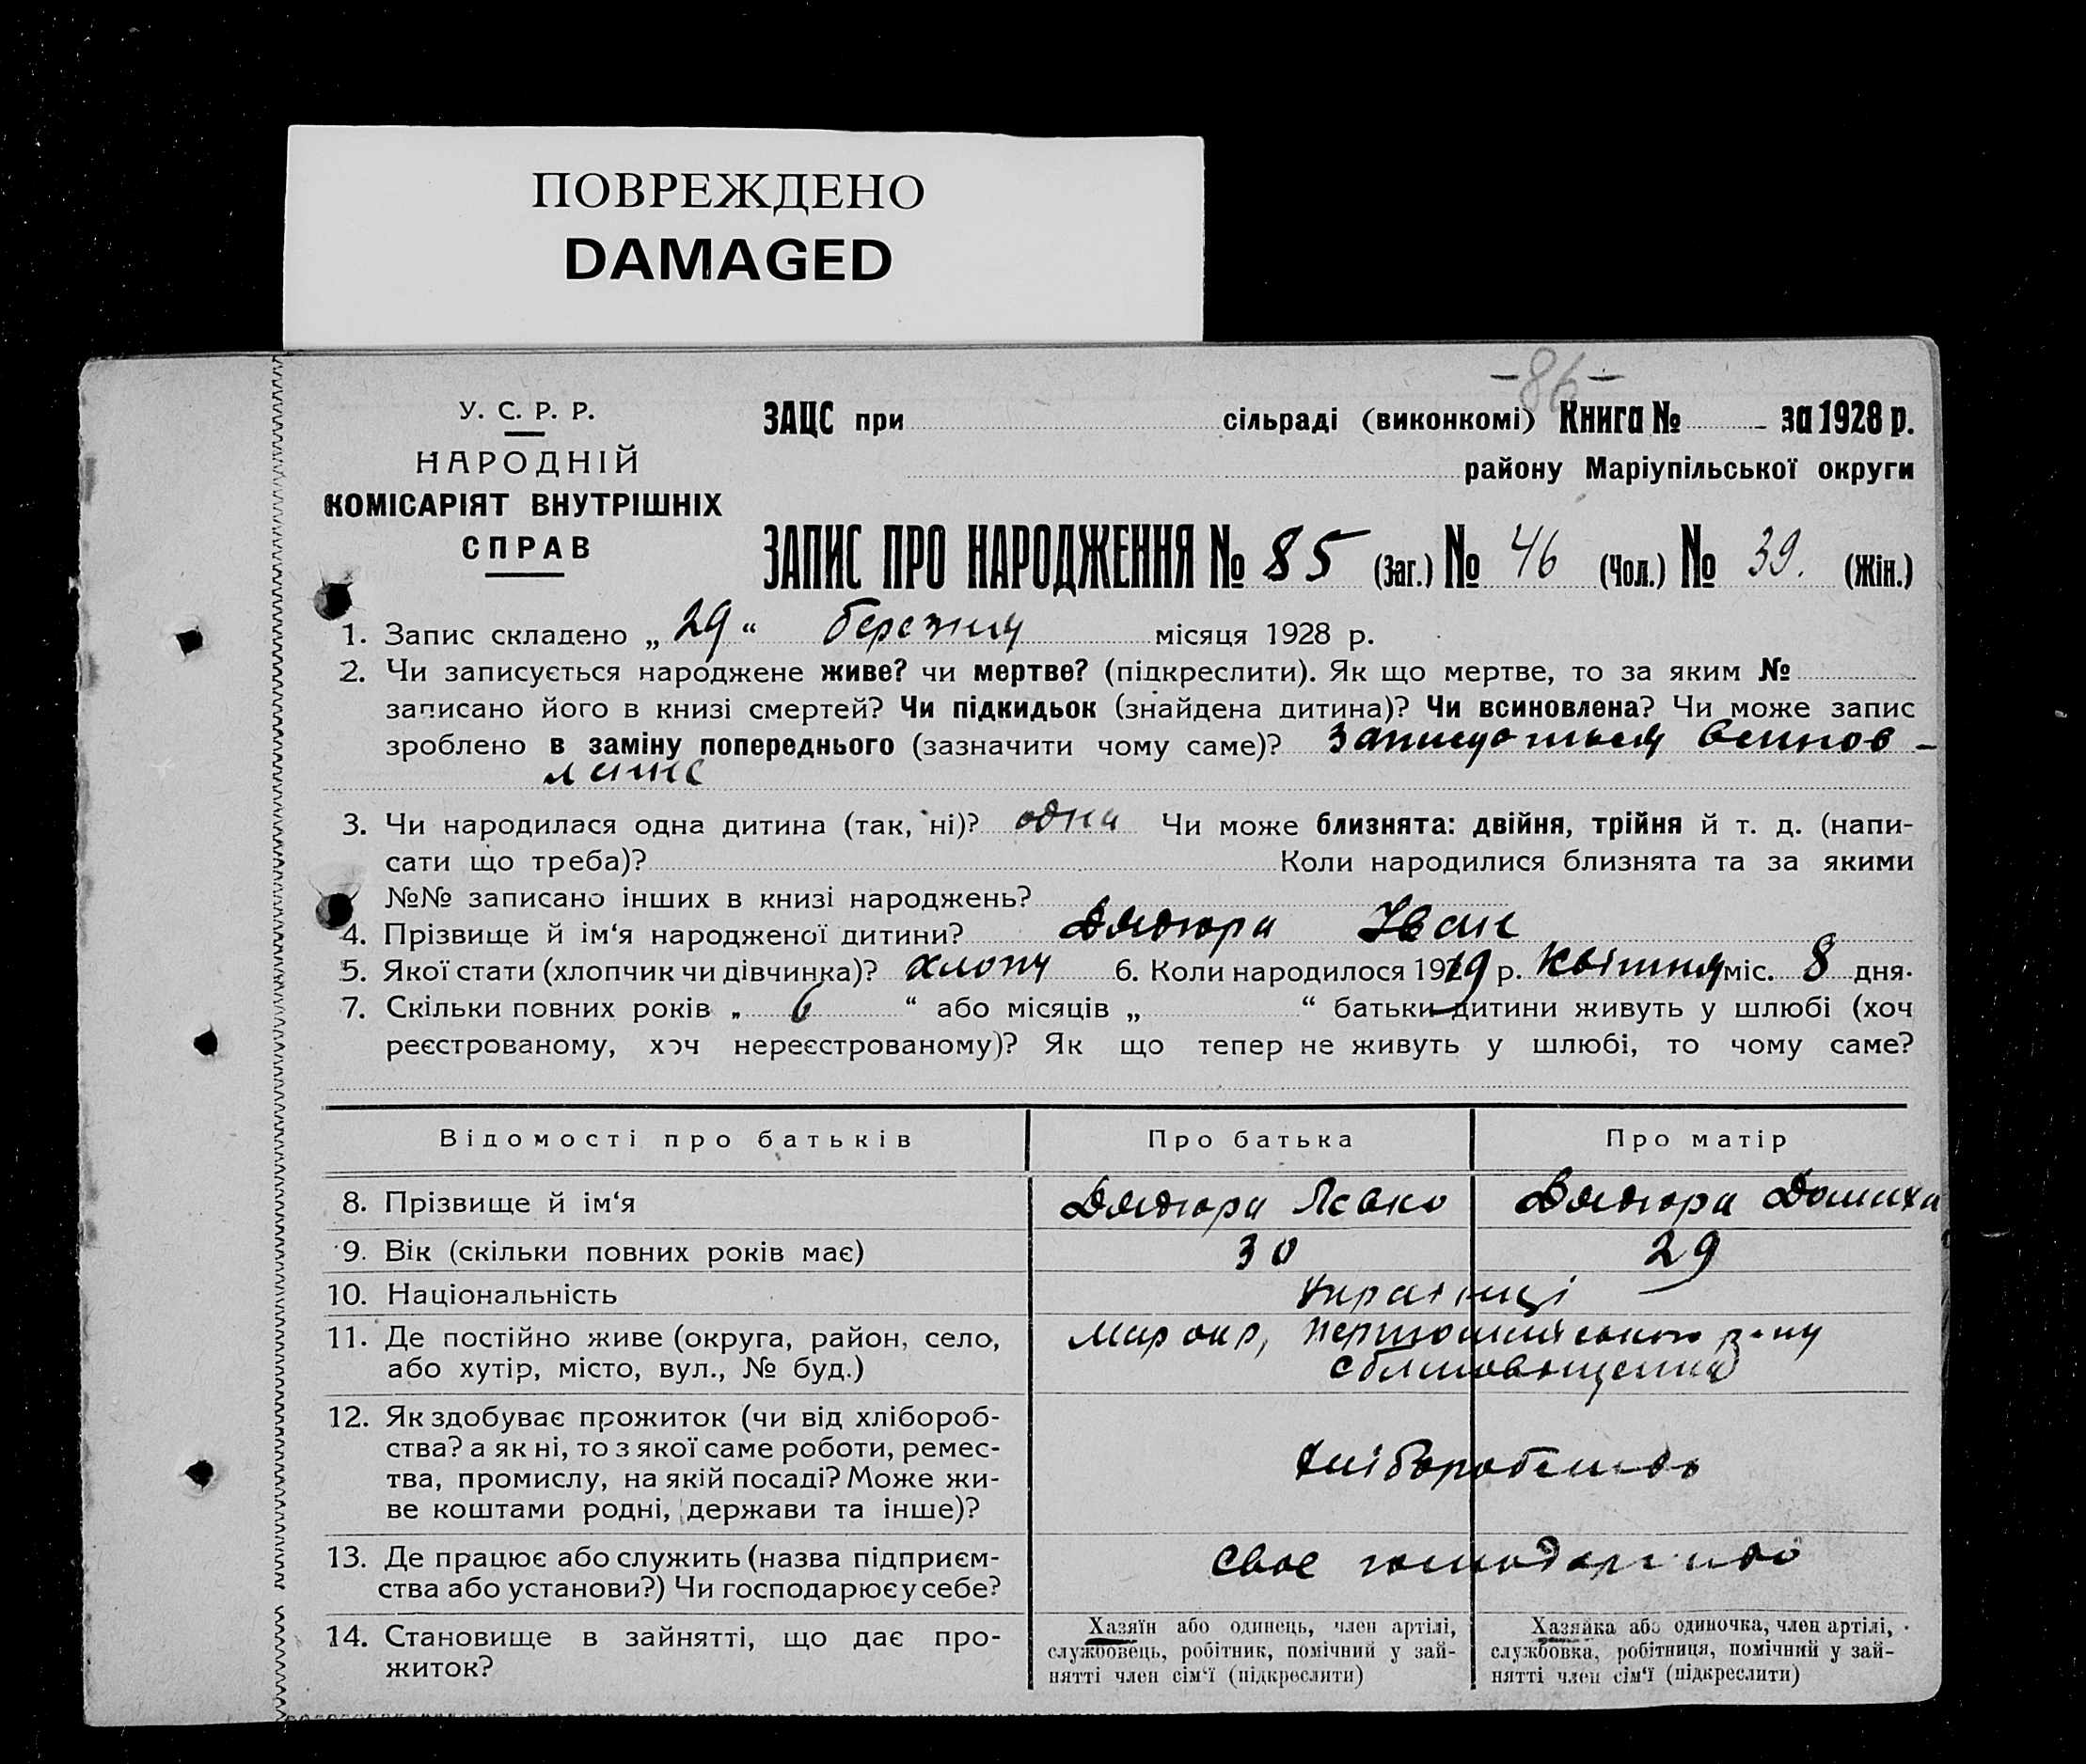 ПОВРЕЖДЕНО
DAMAGED
-86-
У. С. Р. Р.
НАРОДНІЙ
КОМІСАРІЯТ ВНУТРІШНІХ
СПРАВ
ЗАЦС при сільраді (виконкомі) Книга № за 1928 р.
району Маріупільської округи
ЗАПИС ПРО НАРОДЖЕННЯ № 85 (Заг.) № 46 (Чол.) № 39. (Жін.)
1. Запис складено „ 29 “ березня місяця 1928 р.
2. Чи записується народжене живе? чи мертве? (підкреслити). Як що мертве, то за яким №
записано його в книзі смертей? Чи підкидьок (знайдена дитина)? Чи всиновлена? Чи може запис
зроблено в заміну попереднього (зазначити чому саме)?
3. Чи народилася одна дитина (так, ні)? одна Чи може близнята: двійня, трійня й т. д. (напи-
сати що треба)? Коли народилися близнята та за якими
№№ записано інших в книзі народжень?
4. Прізвище й ім‘я народженої дитини? Дядюра Іван
5. Якої стати (хлопчик чи дівчинка)? хлопч 6. Коли народилося 1919 р. квітня міс. 8 дня.
7. Скільки повних років „ 6 “ або місяців „ “ батьки дитини живуть у шлюбі (хоч
реєстрованому, хоч нереєстрованому)? Як що тепер не живуть у шлюбі, то чому саме?
Відомості про батьків Про батька Про матір
8. Прізвище й ім‘я Дядюра Яс Дядюра
9. Вік (скільки повних років має) 30 29
10. Національність Українці
11. Де постійно живе (округа, район, село,
або хутір, місто, вул., № буд.)
12. Як здобуває прожиток (чи від хлібороб-
ства? а як ні, то з якої саме роботи, ремес-
тва, промислу, на якій посаді? Може жи-
ве коштами родні, держави та інше)?
хліборобство
13. Де працює або служить (назва підприєм-
ства або установи?) Чи господарює у себе?
своє господарство
14. Становище в зайнятті, що дає про-
житок?
Хазяїн або одинець, член артілі,
службовець, робітник, помічний у зай-
нятті член сім‘ї (підкреслити)
Хазяйка або одиночка, член артілі,
службовка, робітниця, помічний у зай-
нятті член сім‘ї (підкреслити)